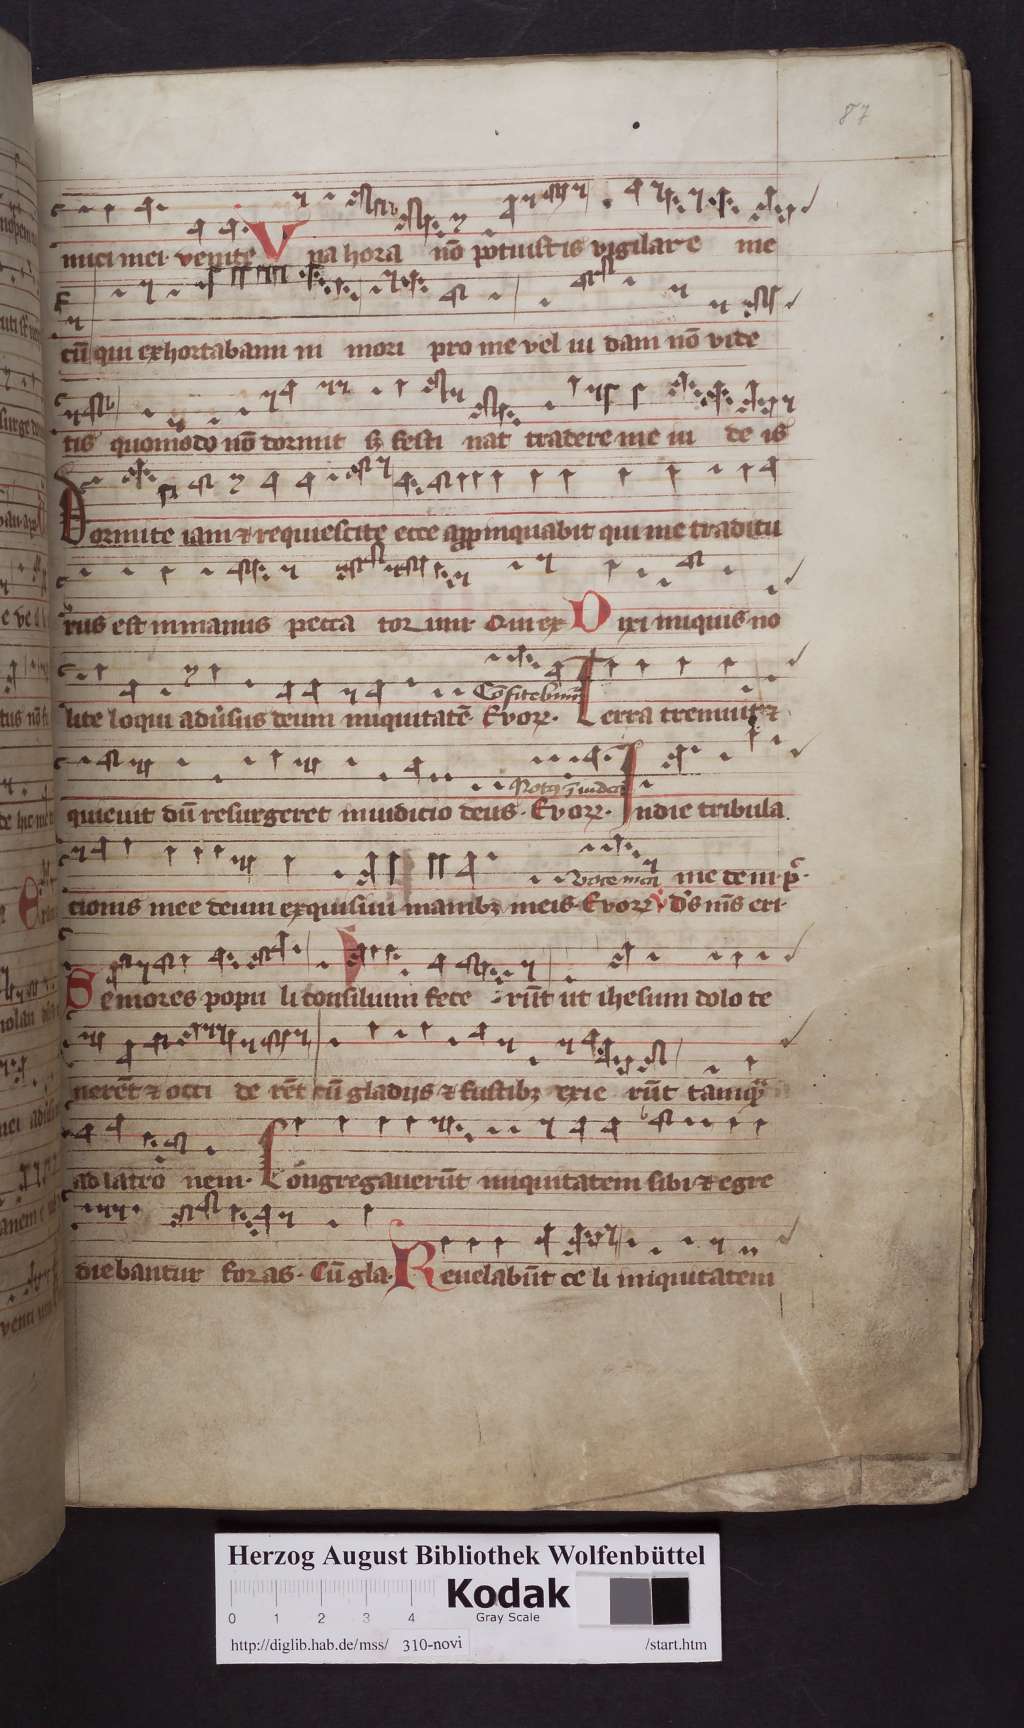 87
mici mei. venite Vna hora nō potuistis vigilare me
cū qui exhortabami ni mori pro me vel iu dam nō vide
tis quomodo nō dormit sʒ festi nat tradere me iu de is
Dormite iam ⁊ requiescite ecce appinquabit qui me traditu
rus est in manus pecca torum. Qui ex Dixi iniquis no
Cōfitebimur
lite loqui adủsus deum iniquitatē. Evoꝝ. Terra tremuit ⁊
Notꝰ ī iudea
quieuit dū resurgeret in iudicio deus. Evoꝝ. In die tribula
Voce mea me de in. p̄.
cionis mee deum exquisiui manibꝫ meis. Evoꝝ. v̓ ds̄ nīs eri
Seniores popu li consilium fece rūt ut ihesum dolo te
nerēt ⁊ occi de rēt cū gladijs ⁊ fustibꝫ exie rūt tamqͣ
ad latro nem. Congregauerūt iniquitatem sibi ⁊ egre
diebantur foras. Cū gla. Reuelabūt ce li iniquitatem
Herzog August Bibliothek Wolfenbüttel
0 1 2 3 4 Kodak
Gray Scale
http://diglib.hab.de/mss/ 310-novi /start.htm